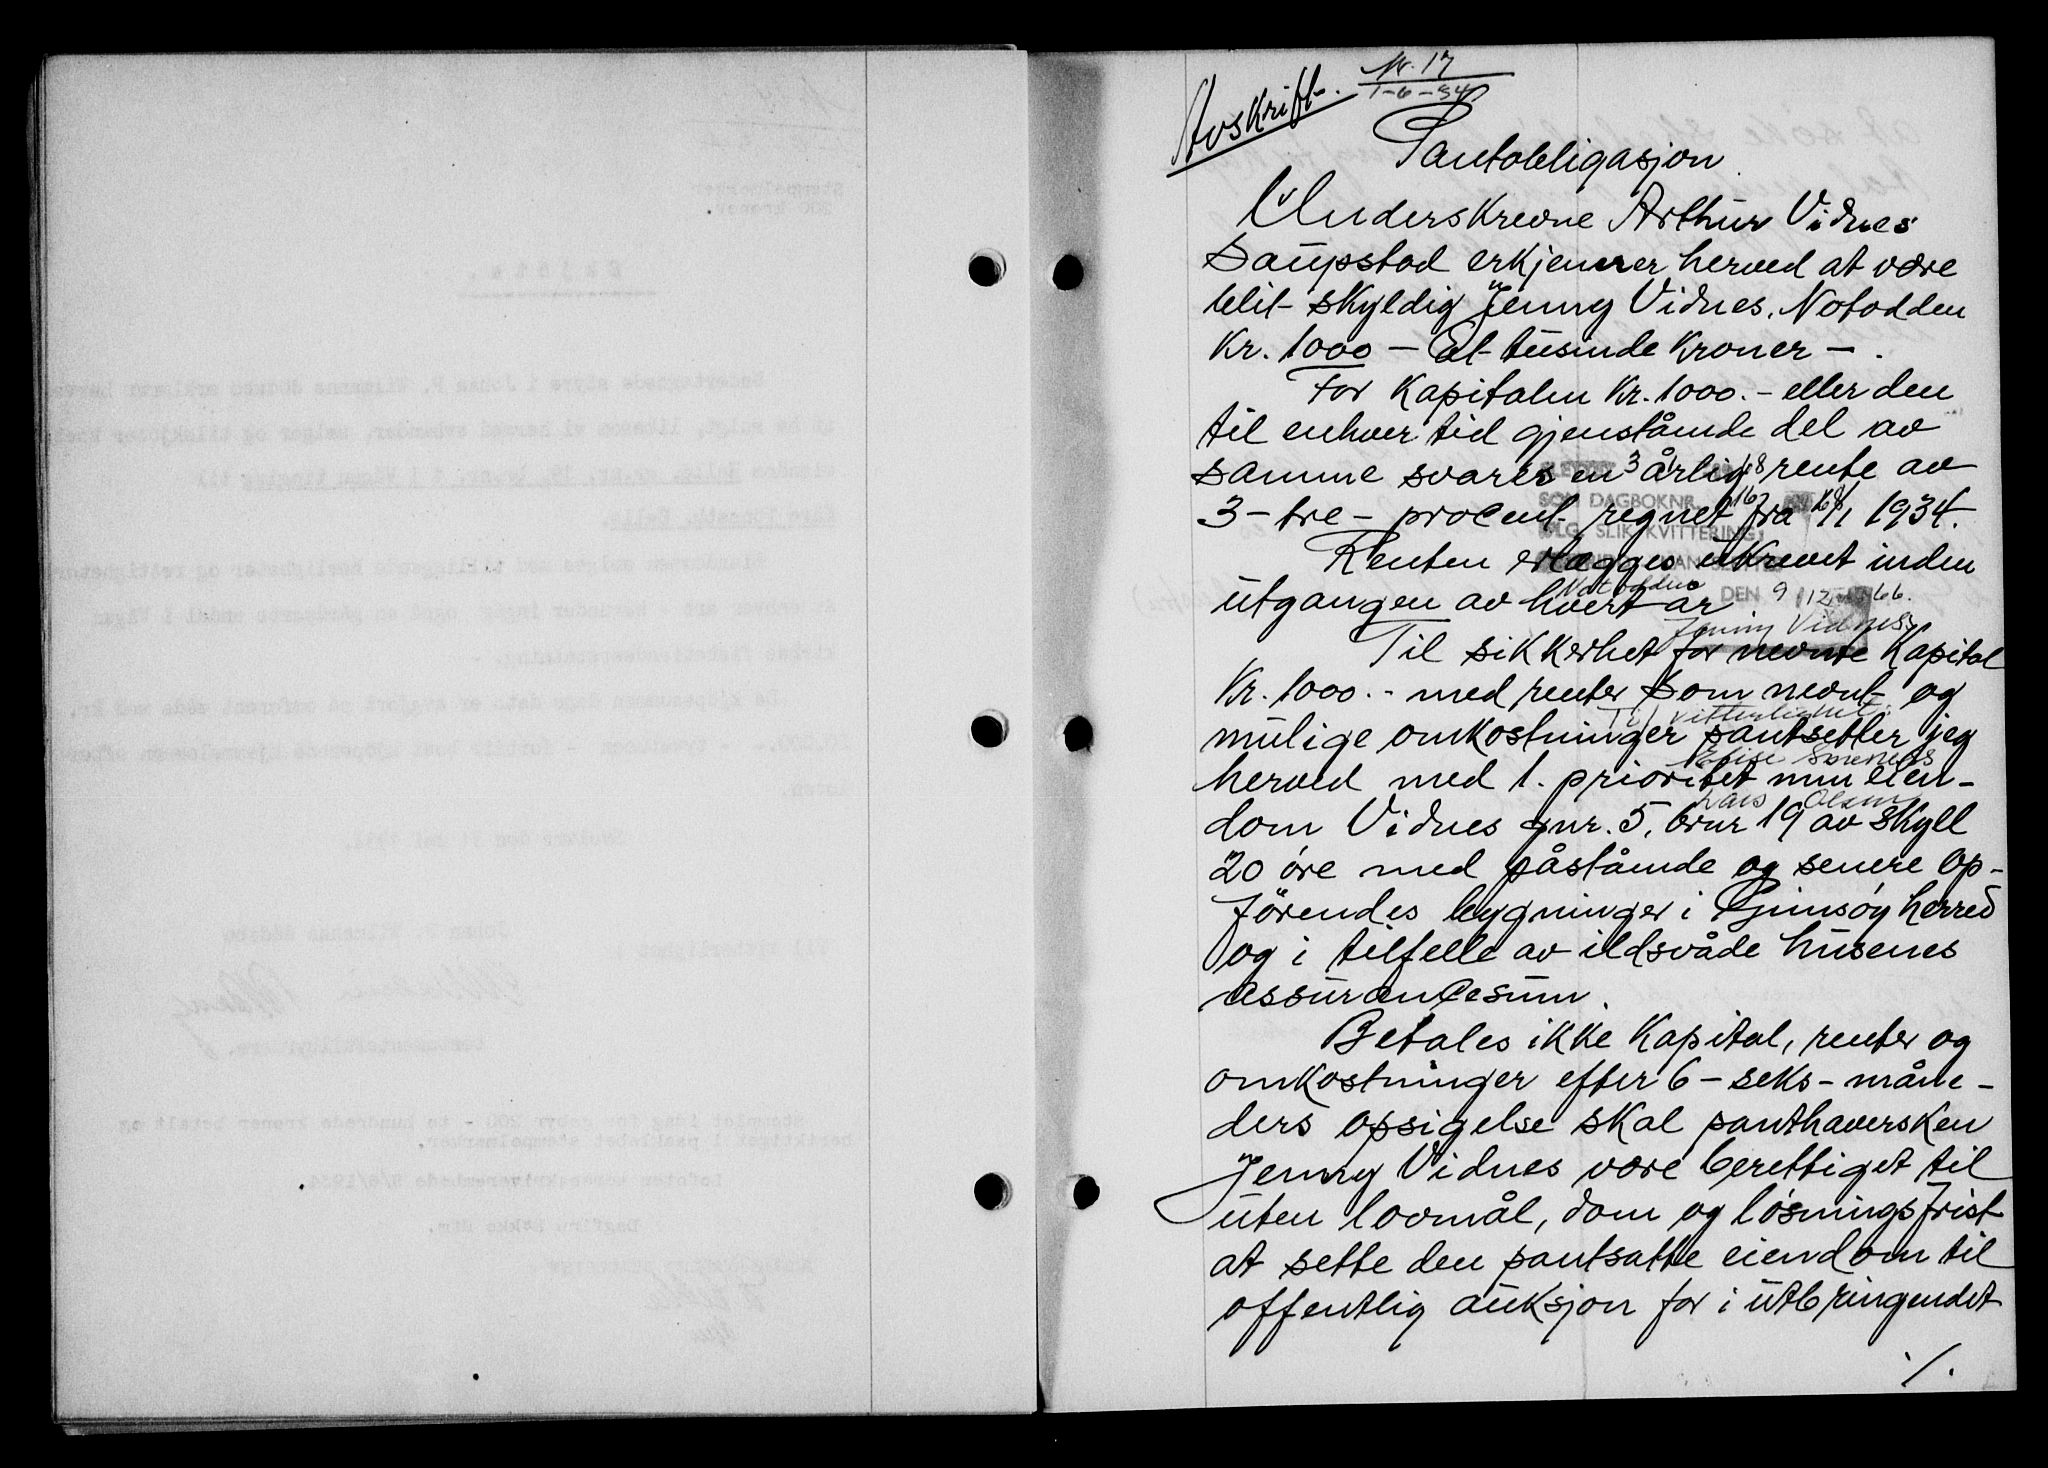 Avskrift.
Nr. 17
1-6-34
Pantobligasjon
Underskrevne Arthur Vidnes
Saupstad erkjenner herved at være
blit skyldig Jenny Vidnes, Notodden
Kr. 1000 — Et tusinde Kroner — .
For Kapitalen Kr. 1000.- eller den
til enhver tid gjenstående del av
samme svares en årlig rente av
3 - tre - procent regnet fra 1/1 1934.
SOM DAGBOKNR.
IFLG. SLIK KVITTERING:
Renten erlægges ukrevet inden
utgangen av hvert år.
Notodden DEN 9/12 66.
Jenny Vidnes
Til sikkerhet for nevnte Kapital
Kr. 1000.- med renter som nevnt og
Til vitterlighet:
mulige omkostninger pantsetter jeg
herved med 1. prioritet min eien-
Lars Olsen
dom Vidnes gnr. 5, brnr 19 av skyll
20 øre med påstående og senere op-
førendes bygninger i Gimsøy herred
og i tilfelle av ildsvåde husenes
assurancesum.
Betales ikke Kapital, renter og
omkostninger efter 6 - seks - måne-
ders opsigelse skal panthaversken
Jenny Vidnes være berettiget til
uten lovmål, dom og løsningsfrist
at sette den pantsatte eiendom til
offentlig auksjon for i utbringendet
./.